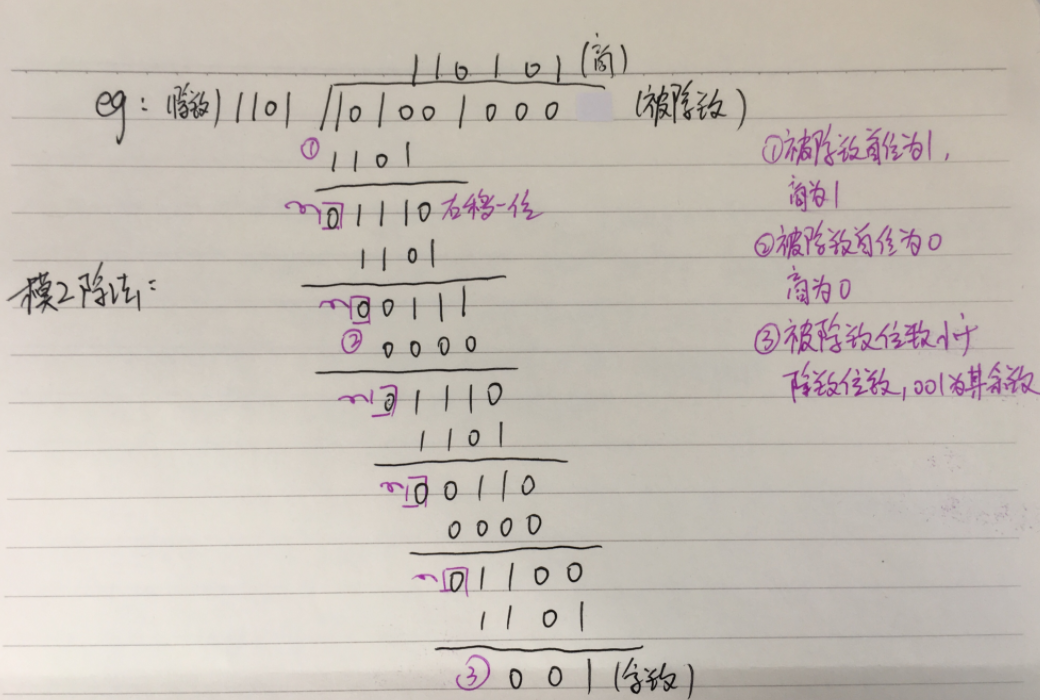 110101 (商)
eg: (除数) 1101 101001000 (被除数)
① 1101
01110 右移一位
1101
模2除法:
00111
② 0000
01110
1101
00110
0000
01100
1101
③ 001 (余数)
①被除数首位为1,
商为1
②被除数首位为0
商为0
③被除数位数小于
除数位数,001为其余数